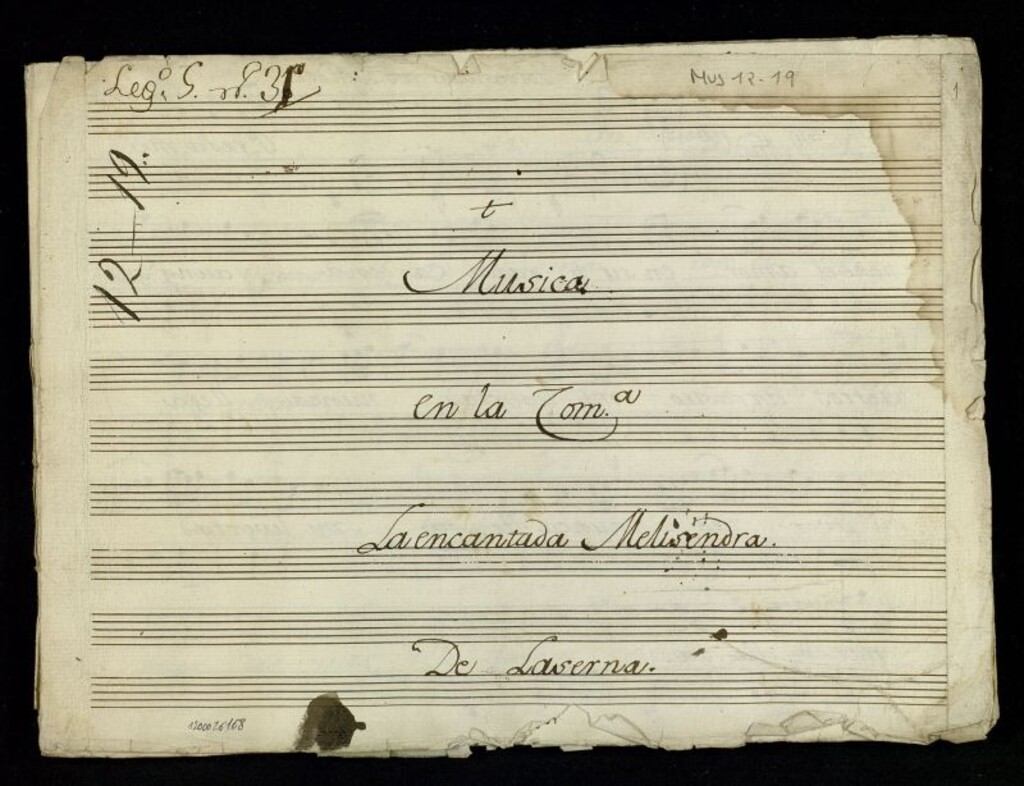 Leg.º G. nº. 31
Mus 12-19
1
12-19.
t
Musica
en la Com.ª
La encantada Melisendra.
De Laserna.
1200026168